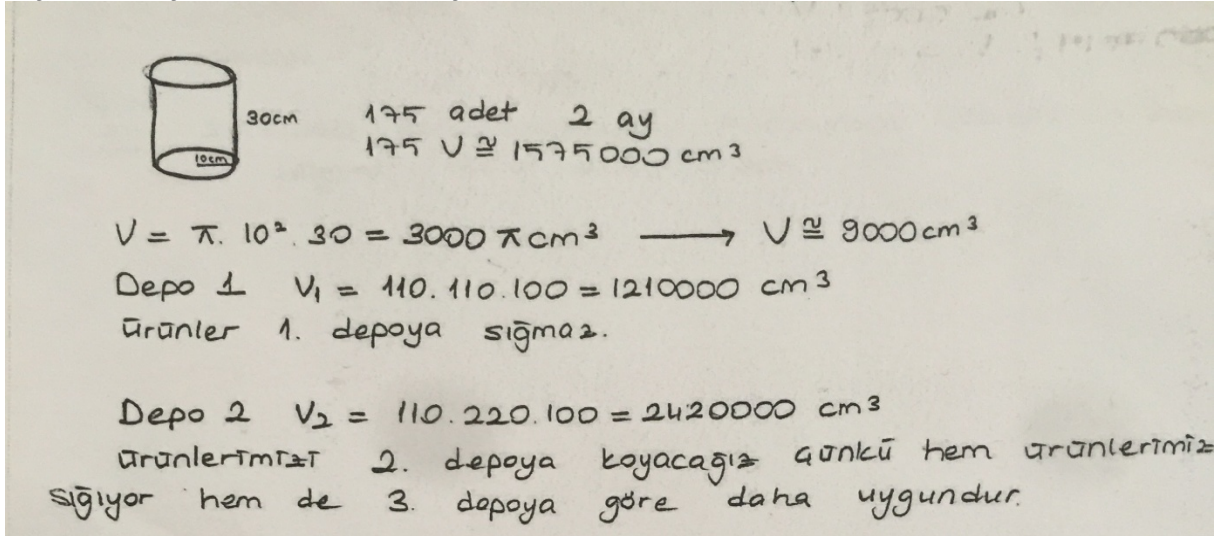 30cm
10cm
175 adet 2 ay
175 V ≅ 1575000 cm³
V = π. 10². 30 = 3000 π cm³ → V ≅ 9000 cm³
Depo 1 V₁ = 110. 110. 100 = 1210000 cm³
ürünler 1. depoya sığmaz.
Depo 2 V₂ = 110. 220. 100 = 2420000 cm³
ürünlerimizi 2. depoya koyacağız çünkü hem ürünlerimiz
sığıyor hem de 3. depoya göre daha uygundur.